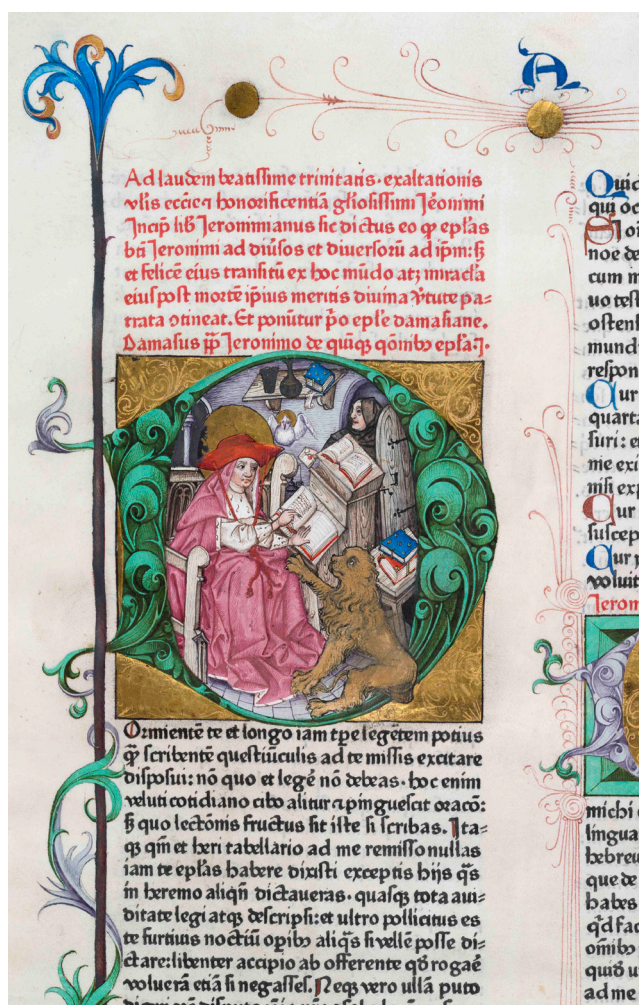 A
Ad laudem beatissime trinitatis· exaltationis
vlis ecciē ⁊ honorificentiā gl'iosissimi Iēonimi
Incip̄ lib̄ Ieronimianus sic dictus eo ꝙ ep̄las
bt̄i Ieronimi ad diu̓sos et diversorū ad ip̄m: s̄ꝫ
et felicē eius transitū ex hoc mūdo atꝫ miracl̓a
eius post mortē ip̄ius meritis diuina v̓tute pa⸗
trata ↄtineat. Et ponūtur p̄o ep̄le damasiane.
Damasus pp̄ Ieronimo de quīqꝫ
Ormientē te et longo iam tp̄e legētem potius
q̄ꝫ scribentē questiūculis ad te missis excitare
disposui: nō quo et legē nō debeas· hoc enim
veluti cotidiano cibo alitur ⁊ pinguescit oracō:
s̄ꝫ quo lectōnis fructus sit iste si scribas. Ita⸗
qꝫ qm̄ et heri tabellario ad me remisso nullas
iam te ep̄las habere dixisti exceptis hijs q̄s
in heremo aliqn̄ dictaveras· quasqꝫ tota aui⸗
ditate legi atqꝫ descripsi: et ultro pollicitus es
te furtiuis noctiū op̄ibꝫ aliq̄s si vellē posse di⸗
ctare: libenter accipio ab offerente qd̄ rogāē
voluerā etiā si negasses. Neqꝫ vero ullā puto
Quid
qui oc
Si oi
noe de
cum m
uo test
ostens
mundi
respon
Cur
quarta
suri: e
me exi
nisi exp
Cur
suscep
Cur p
voluit
Ieron
michi
lingua
hebreu
que de
habes
qd̄ fac
om̄ibꝫ
quid u
ad me